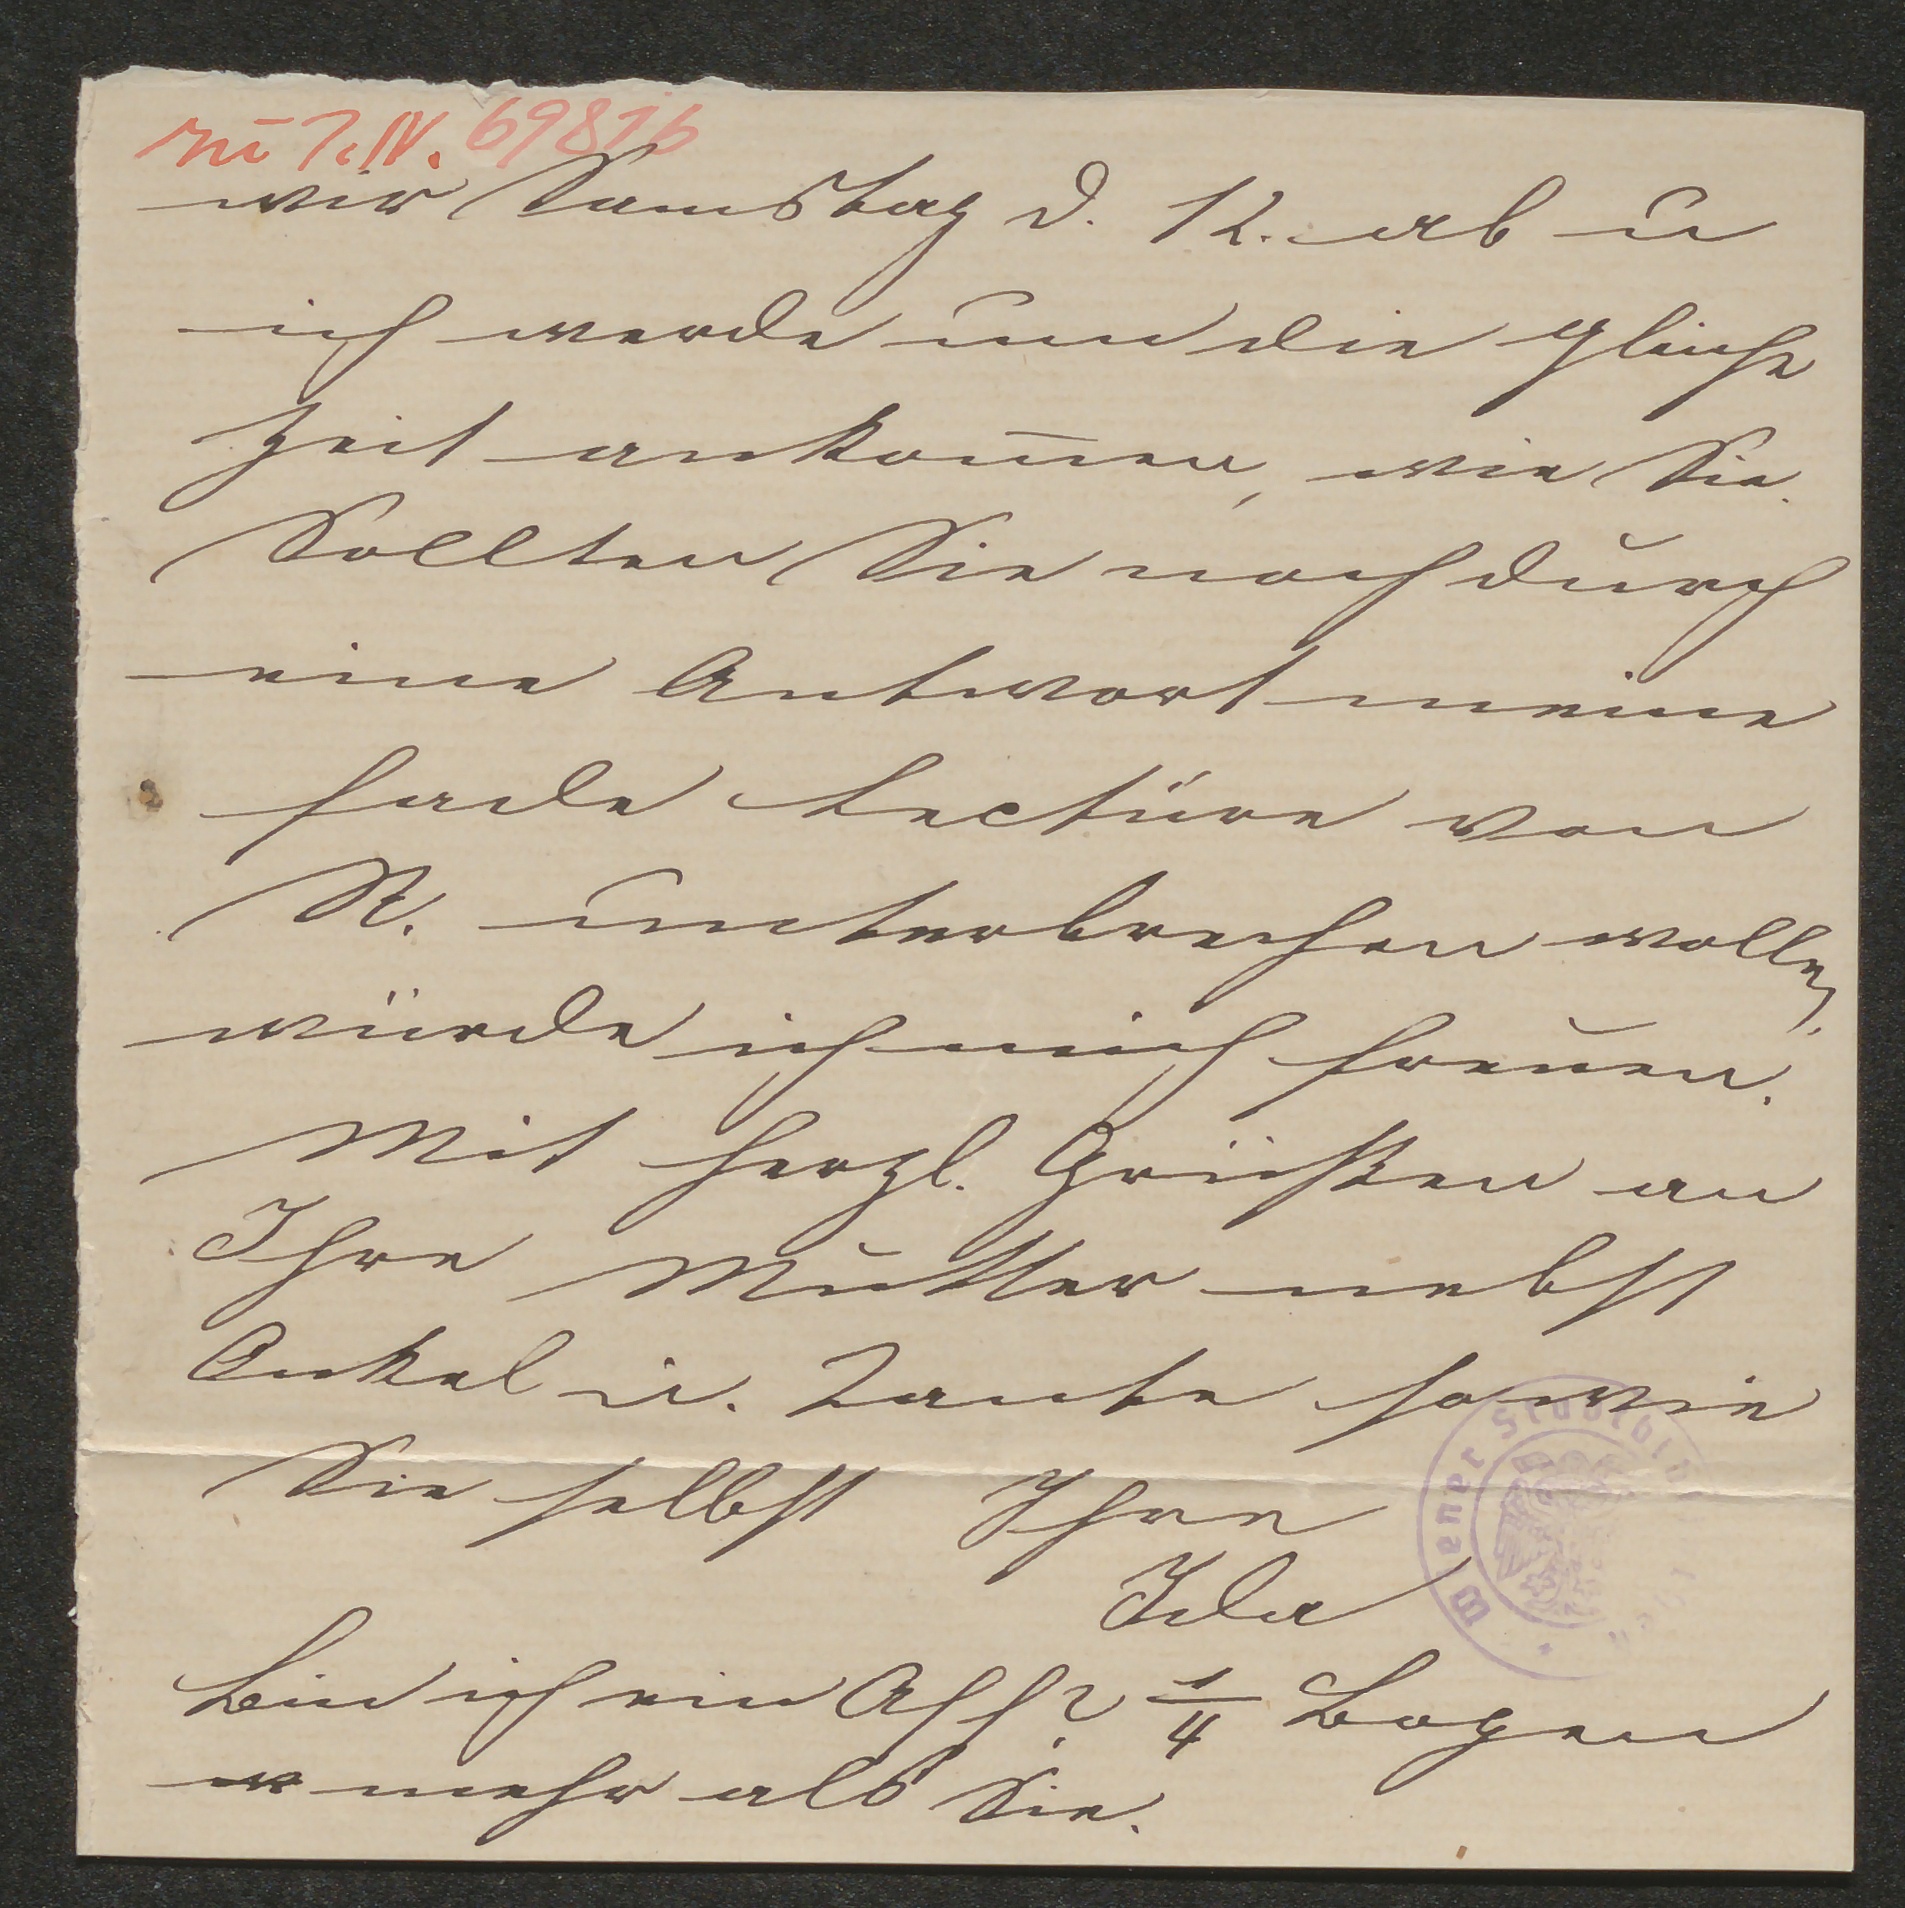 zu I.N. 69816
wir Samstag d. 12. ab u
ich werde um die gleiche
Zeit ankom̅en, wie Sie.
Sollten Sie noch durch
eine Antwort meine
fade Lectüre von
N. unterbrechen wollen,
würde ich mich freuen.
Mit herzl. Grüßen an
Ihre Mutter nebst
Onkel u. Tante sowie
Sie selbst Ihre
Ida
Bin ich ein Aff? 1/4 Bogen
mehr als Sie.
Wiener Stadtbibl